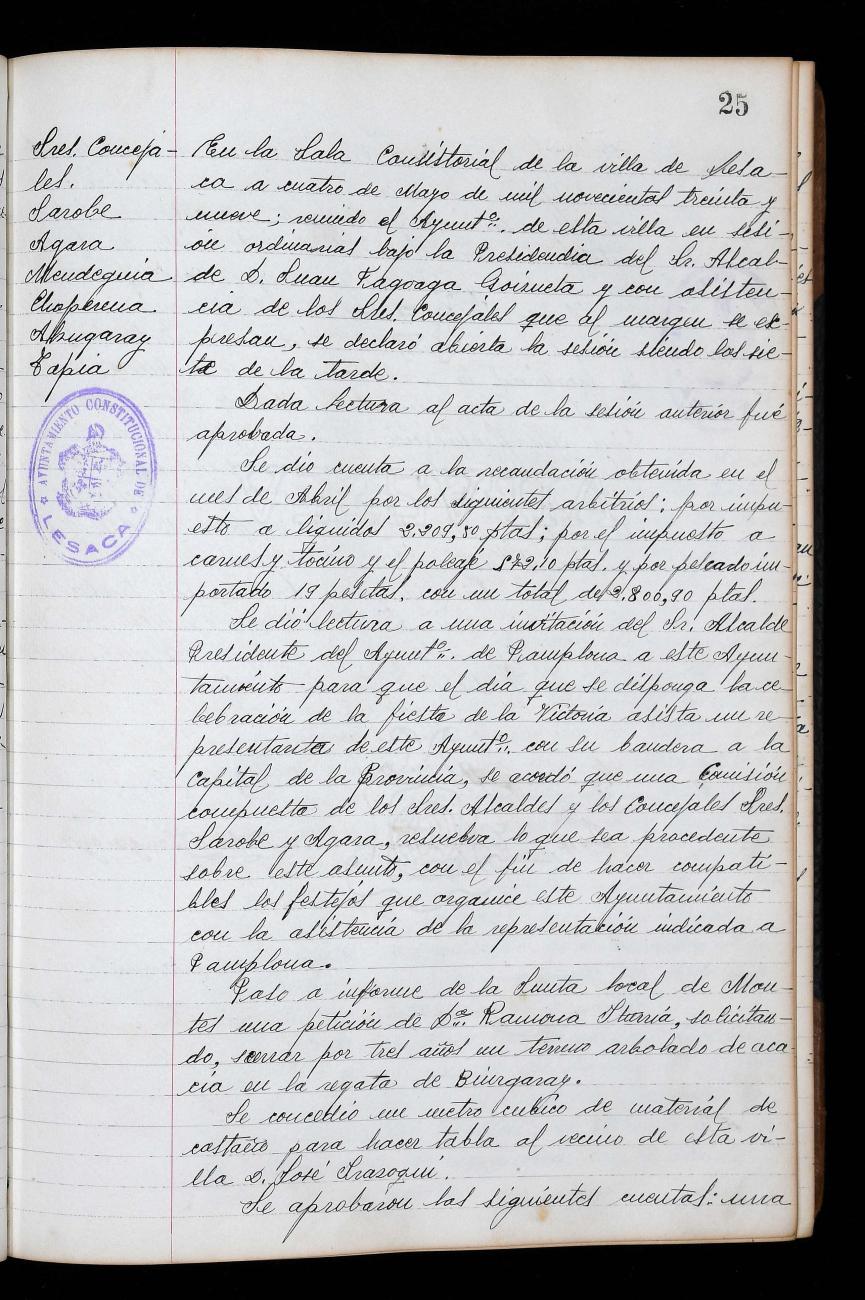 25
Sres. Conceja-
les.
Sarobe
Agara
Mendeguia
Choperena
Alzugaray
Tapia
AYUNTAMIENTO CONSTITUCIONAL DE
LESACA
En la Sala Consistorial de la villa de Lesa-
ca a cuatro de Mayo de mil novecientos treinta y
nueve; reunido el Ayuntº. de esta villa en sesi-
ón ordinarias bajo la Presidendia del Sr. Alcal-
de D. Juan Fagoaga Goizueta y con asisten-
cia de los Sres. Concejales que al margen se ex-
presan, se declaró abierta la sesión siendo las sie-
te de la tarde.
Dada lectura al acta de la sesión anterior fué
aprobada.
Se dio cuenta a la recaudación obtenida en el
mes de Abril por los siguientes arbitrios: por impu
esto a liquidos 2.209,80 ptas; por el impuesto a
carnes y tocino y el poleaje 572,10 ptas. y por pescado im-
portado 19 pesetas. con un total de 2.800,90 ptas.
Se dió lectura a una invitación del Sr. Alcalde
Presidente del Ayuntº. de Pamplona a este Ayun-
tamiento para que el dia que se disponga la ce-
lebración de la fiesta de la Victoria asista un re-
presentante de este Ayuntº. con su bandera a la
Capital de la Provincia, se acordó que una Comisión
compuesta de los Sres. Alcaldes y los Concejales Sres.
Sarobe y Agara, resuelva lo que sea procedente
sobre este asunto, con el fin de hacer compati-
bles los festejos que organice este Ayuntamiento
con la asistencia de la representación indicada a
Pamplona.
Paso a informe de la Junta local de Mon-
tes una petición de Dª. Ramona Iturria, solicitan-
do, serrar por tres años un terreno arbolado de aca-
cia en la regata de Biurgaray.
Se concedio un metro cubico de material de
castaño para hacer tabla al vecino de esta vi-
lla D. José Irazoqui.
Se aprobaron las siguientes cuentas: una